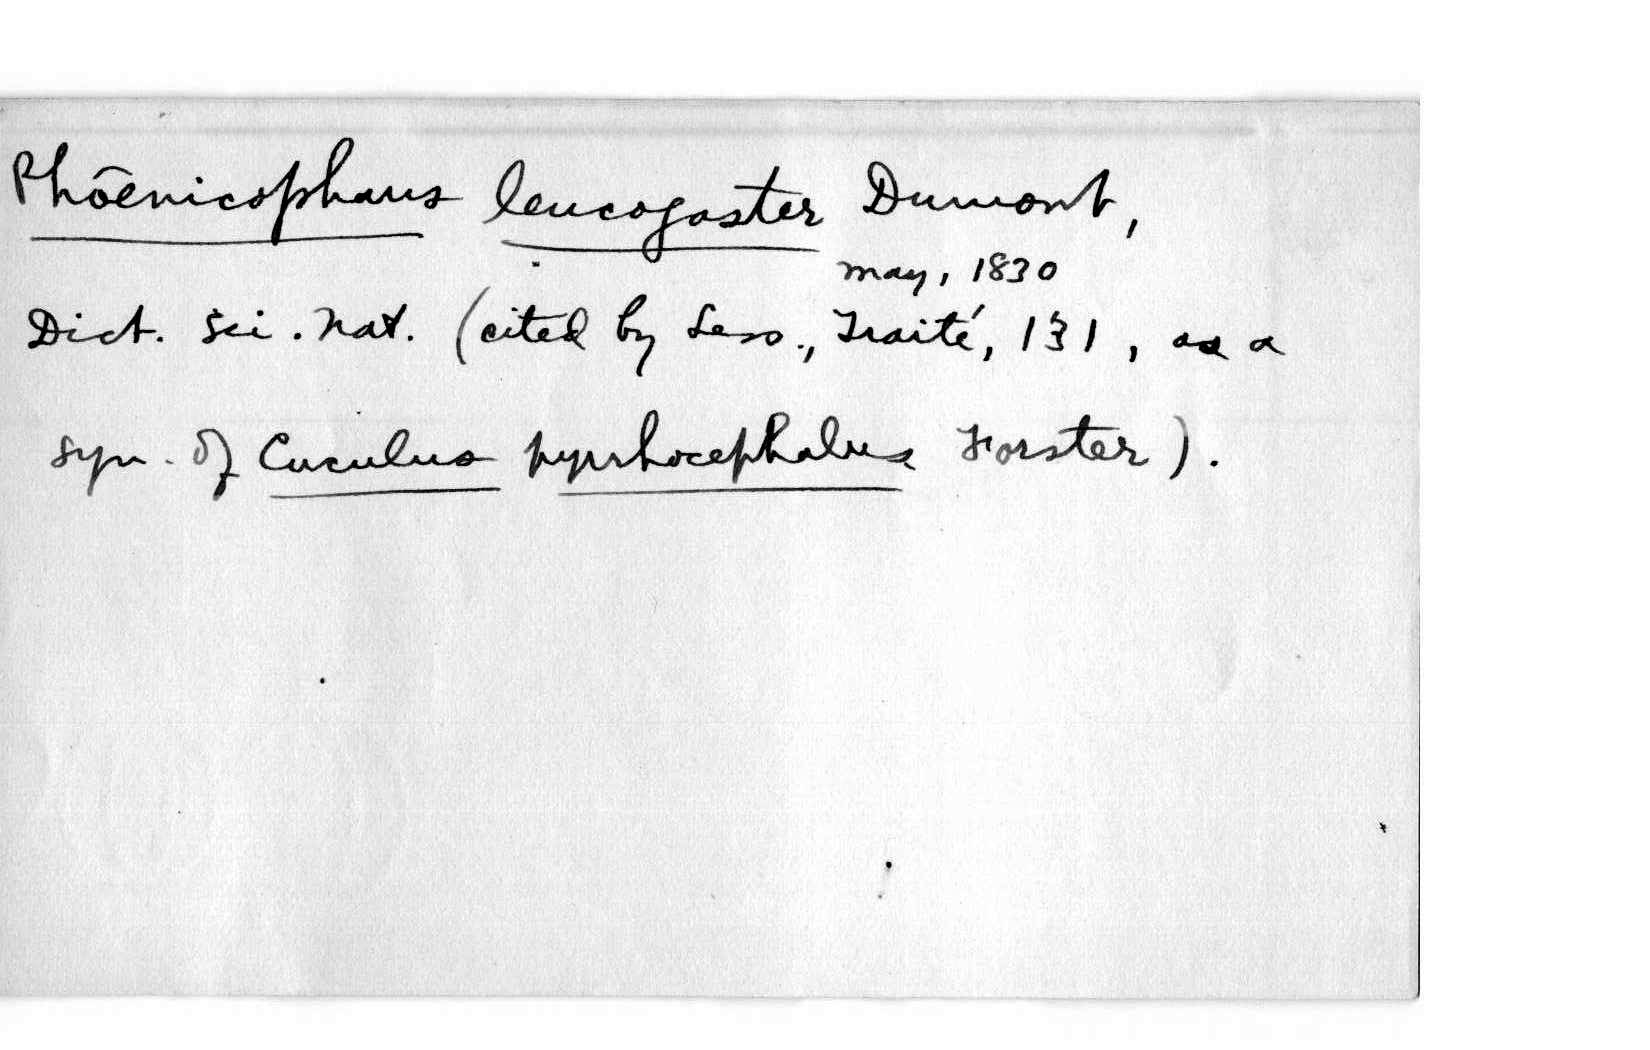 Phōenicophaus leucogaster Dumont,
may, 1830
Dict. Sci. Nat. (cited by Less., Traité, 131, as a
syn. of Cuculus pyrrhocephalus Forster).